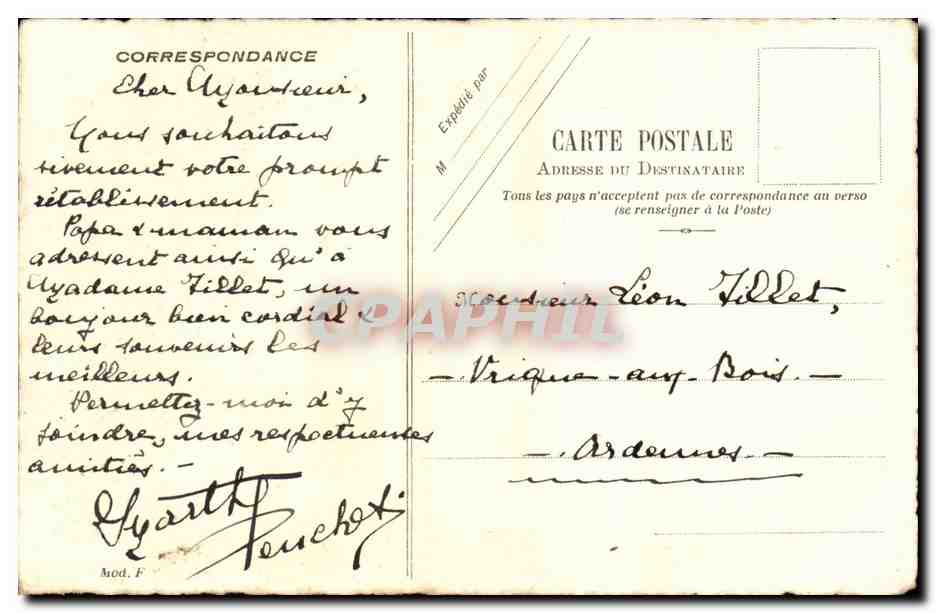 CORRESPONDANCE
Cher Monsieur,
Nous souhaitons
vivement votre prompt
rétablissement.
Papa & maman vous
adressent ainsi qu'à
Madame Tillet, un
bonjour bien cordial &
leurs souvenirs les
meilleurs.
Permettez-moi d'y
joindre, mes respectueuses
amitiés. -
Marthe
Peuchet
Mod. F
M
Expédié par
CARTE POSTALE
ADRESSE DU DESTINATAIRE
Tous les pays n'acceptent pas de correspondance au verso
(se renseigner à la Poste)
Monsieur Léon Tillet,
- Vrigne-aux-Bois. -
- Ardennes -
CPAPHIL